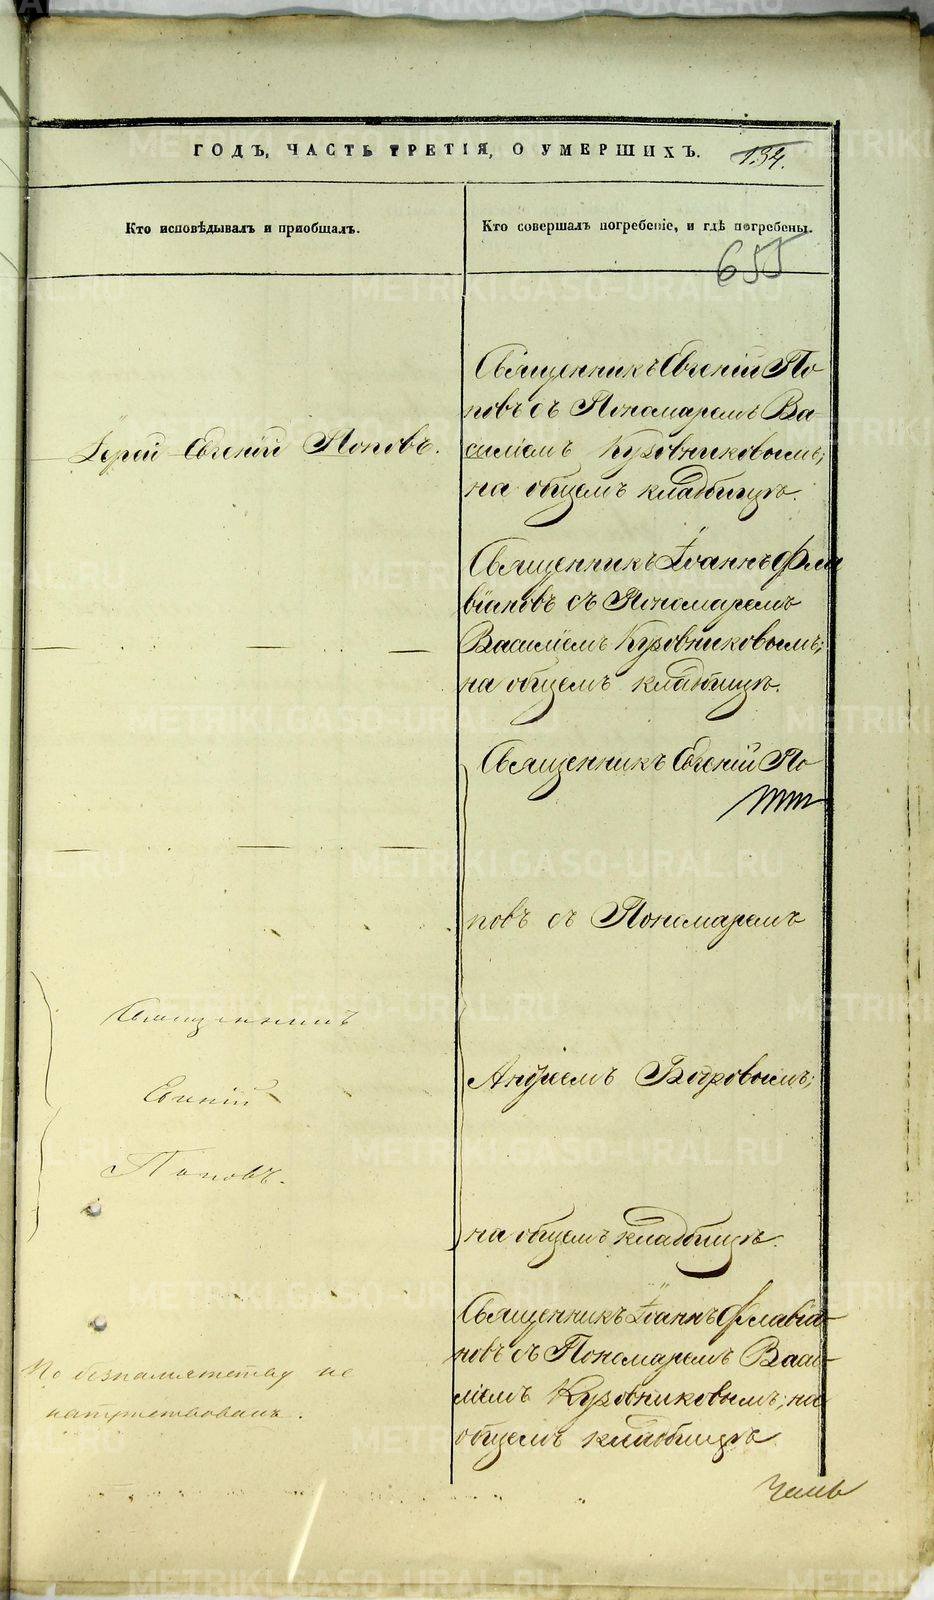 ГОДЪ, ЧАСТЬ ТРЕТІЯ, О УМЕРШИХЪ.
134.
Кто исповѣдывалъ и приобщалъ.
Кто совершалъ погребеніе, и гдѣ погребены.
655
Іерей Евгеній Поповъ.
Священникъ Евгеній По
повъ съ Пономаремъ Ва
силіемъ Кузовниковымъ;
на общемъ кладбищѣ.
Священникъ Іоаннъ Фла
віановъ съ Пономаремъ
Василіемъ Кузовниковымъ;
на общемъ кладбищѣ.
Священникъ Евгеній По
повъ съ Пономаремъ
Андреемъ Бобровымъ;
на общемъ кладбищѣ.
Священникъ
Евгеній
Поповъ.
По безпамятству не
напутствованъ.
Священникъ Іоаннъ Флавіа
новъ съ Пономаремъ Васи-
ліемъ Кузовниковымъ; на
общемъ кладбищѣ.
METRIKI.GASO-URAL.RU